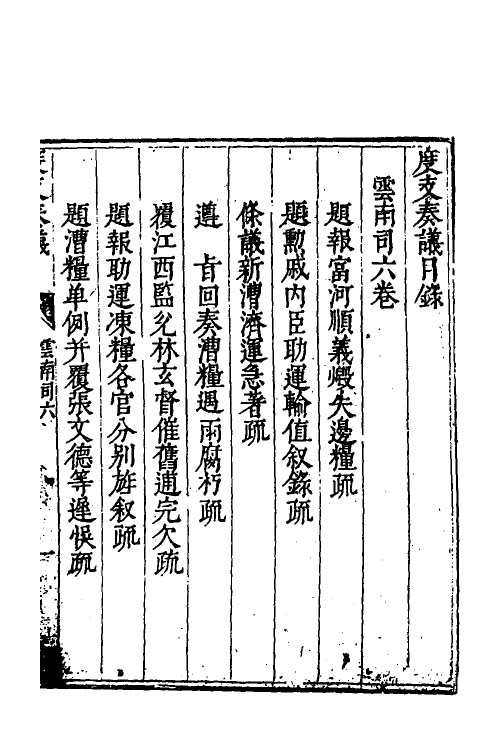 度支奏議目錄
雲南司六卷
題報富河順義燬失邊糧疏
題勲戚內臣助運輸值叙錄疏
條議新漕濟運急著疏
遵　旨回奏漕糧遇雨腐朽疏
覆江西監兌林玄督催舊逋完欠疏
題報助運凍糧各官分別旌叙疏
題漕糧单例并覆張文德等遲悞疏
雲南司六